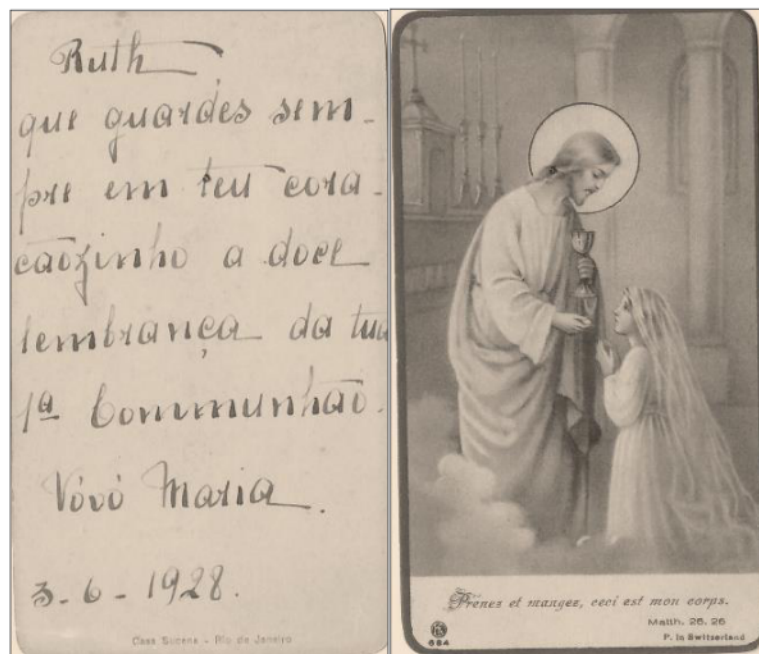 Ruth
que guardes sem-
pre em teu cora-
cãozinho a doce
lembrança da tua
1ª Communhão.
Vóvó Maria.
3-6-1928.
Casa Sucena - Rio de Janeiro
Prenez et mangez, ceci est mon corps.
Matth. 26. 26
684
P. in Switserland